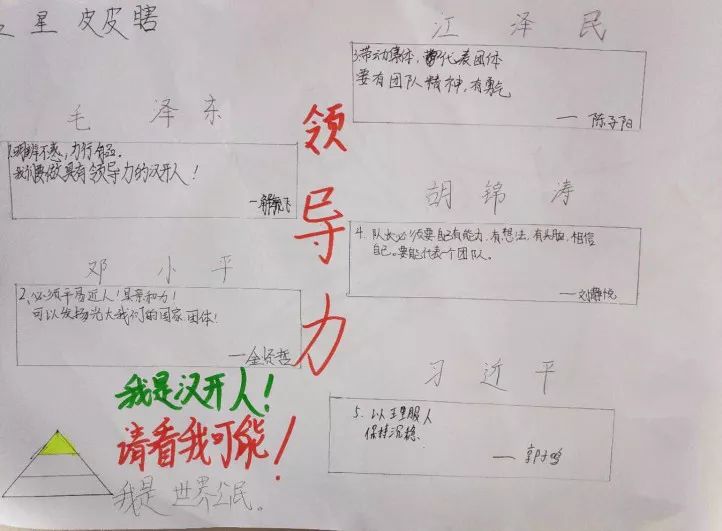 星 皮皮瞎
毛 泽 东
力行
我们要做具有领导力的汉开人！
邓 小 平
2、必须平易近人！具亲和力！
可以发扬光大我们的国家团体！
——金贤哲
我是汉开人！
请看我可能！
我是 世界公民。
领导力
江 泽 民
3.带动集体，代表团体
要有团队精神，有勇气
—— 陈子阳
胡 锦 涛
4、队长必须要自己有能力，有想法，有头脑，相信
自己。要能代表一个团队。
——刘静悦
习 近 平
5、以 服人
保持沉稳
——